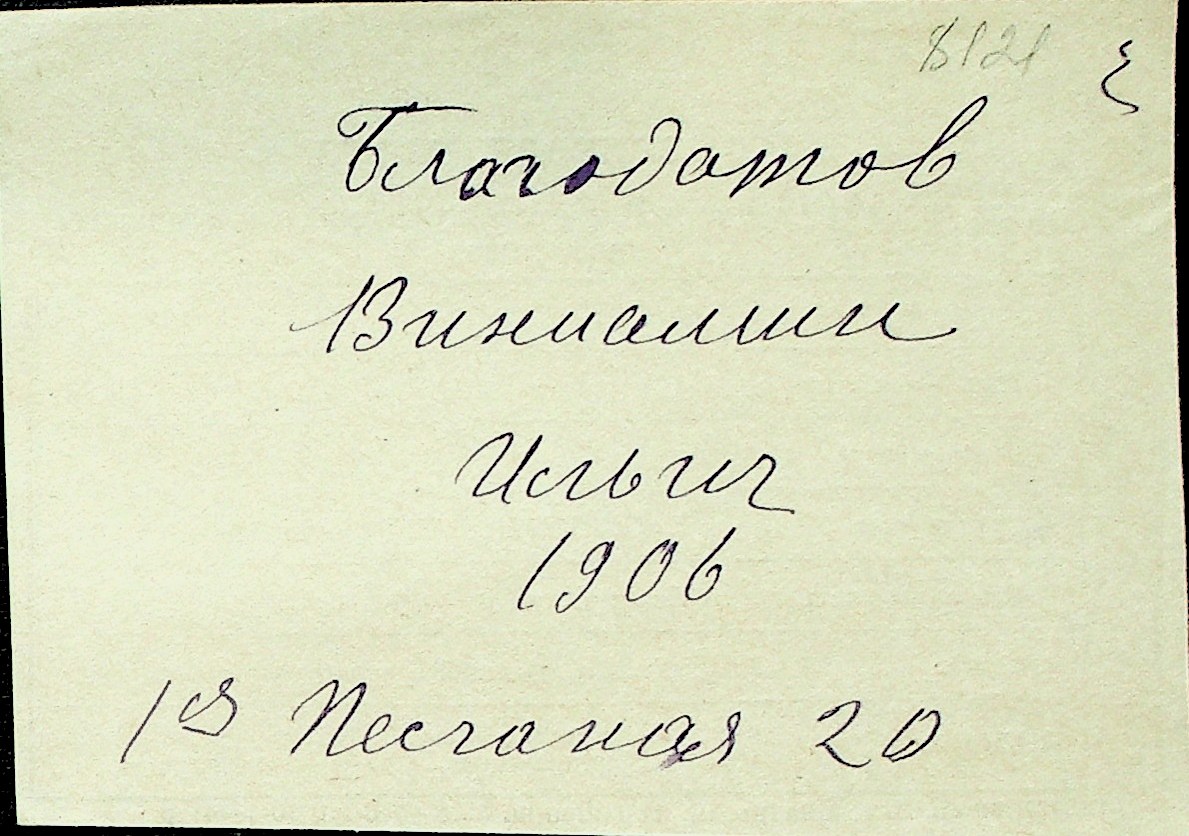 8121
Благодатов
Виниамин
Ильич
1906
1ая Песчаная 20